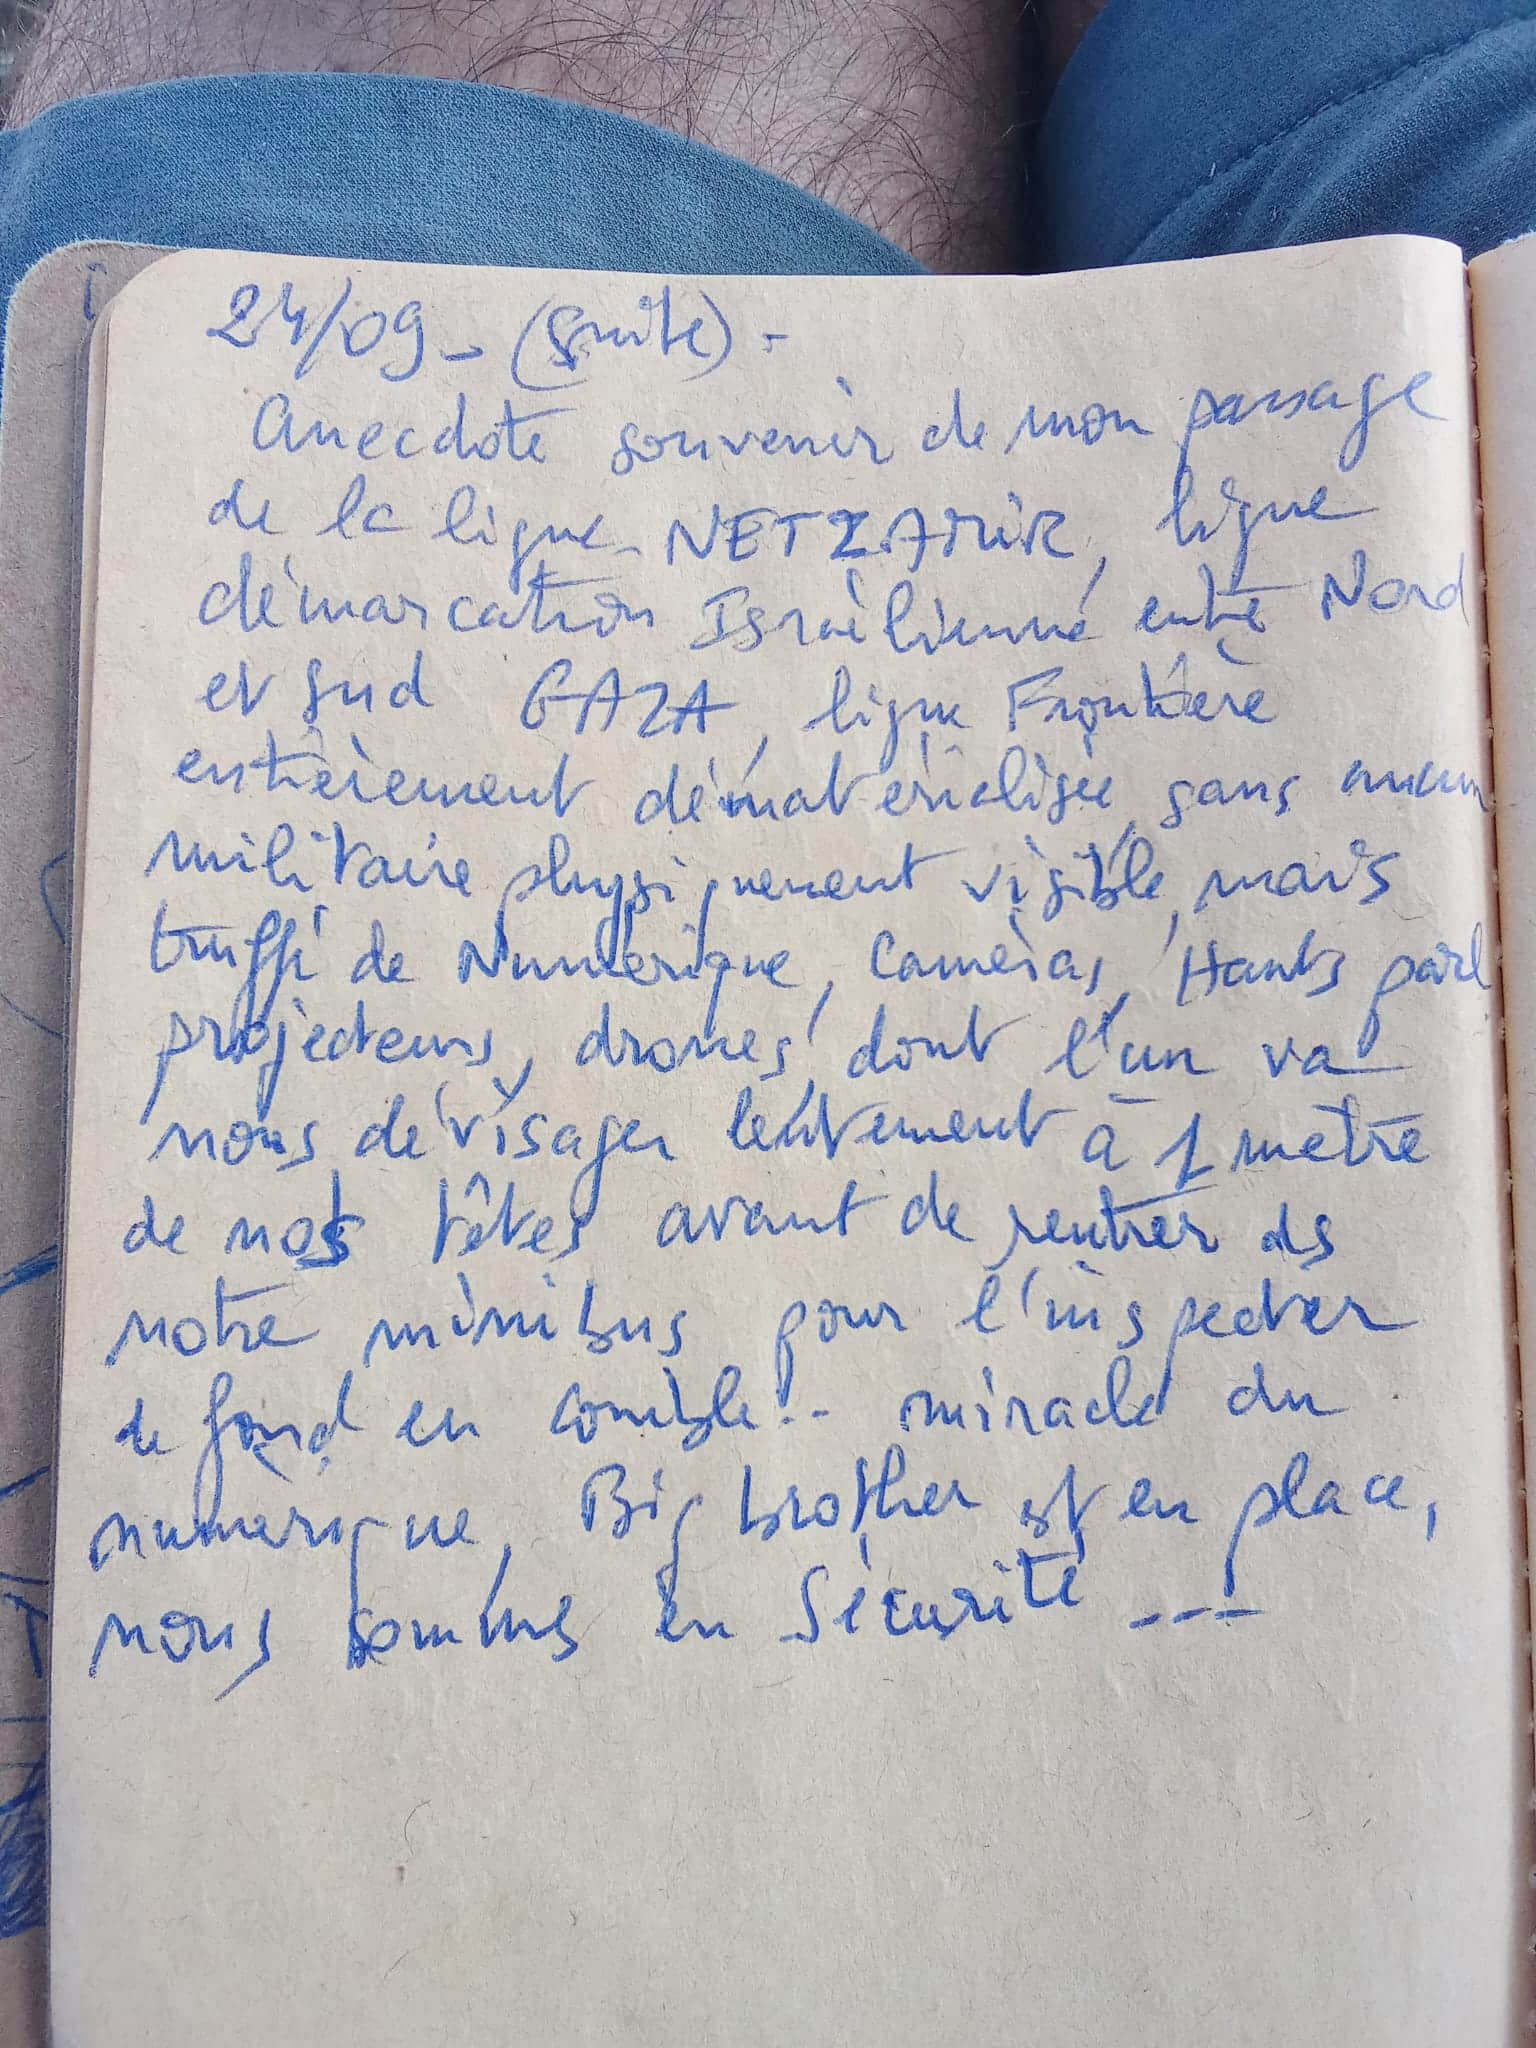 24/09 - (Suite) -
Anecdote souvenir de mon passage
de la ligne NETZARIR, ligne
démarcation Israélienne entre Nord
et Sud GAZA, ligne Frontière
entièrement dématérialisée, sans aucun
militaire physiquement visible, mais
truffé de Numérique, Caméras, Hauts parl
projecteurs, drones, dont l'un va
nous dévisager lentement à 1 mètre
de nos têtes avant de rentrer ds
notre minibus pour l'inspecter
de fond en comble.. miracle du
numérique, Big brother est en place,
nous sommes en Sécurité ---